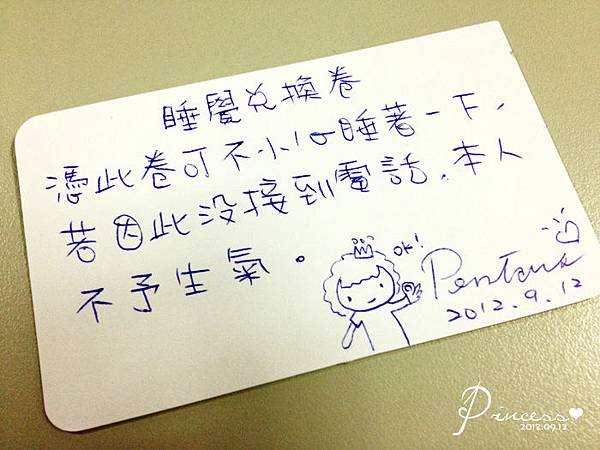 睡覺兌換卷
憑此卷可不小心睡著一下,
若因此没接到電話,本人
不予生氣。
OK!
2012.9.12
Princess
2012.09.12